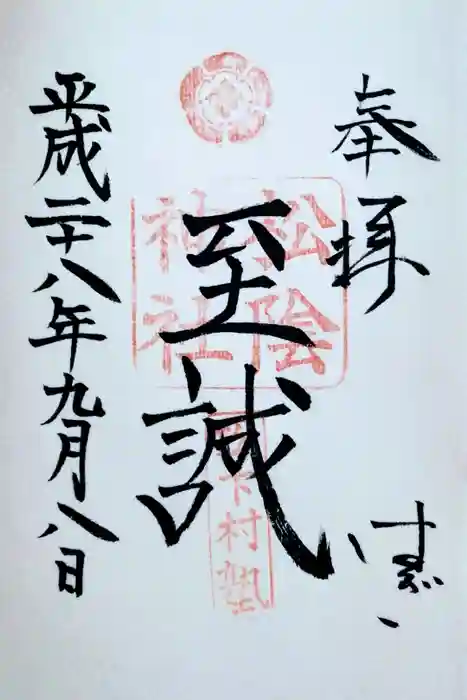 奉拝
至誠
平成二十八年九月八日
松陰
神社
松下村塾